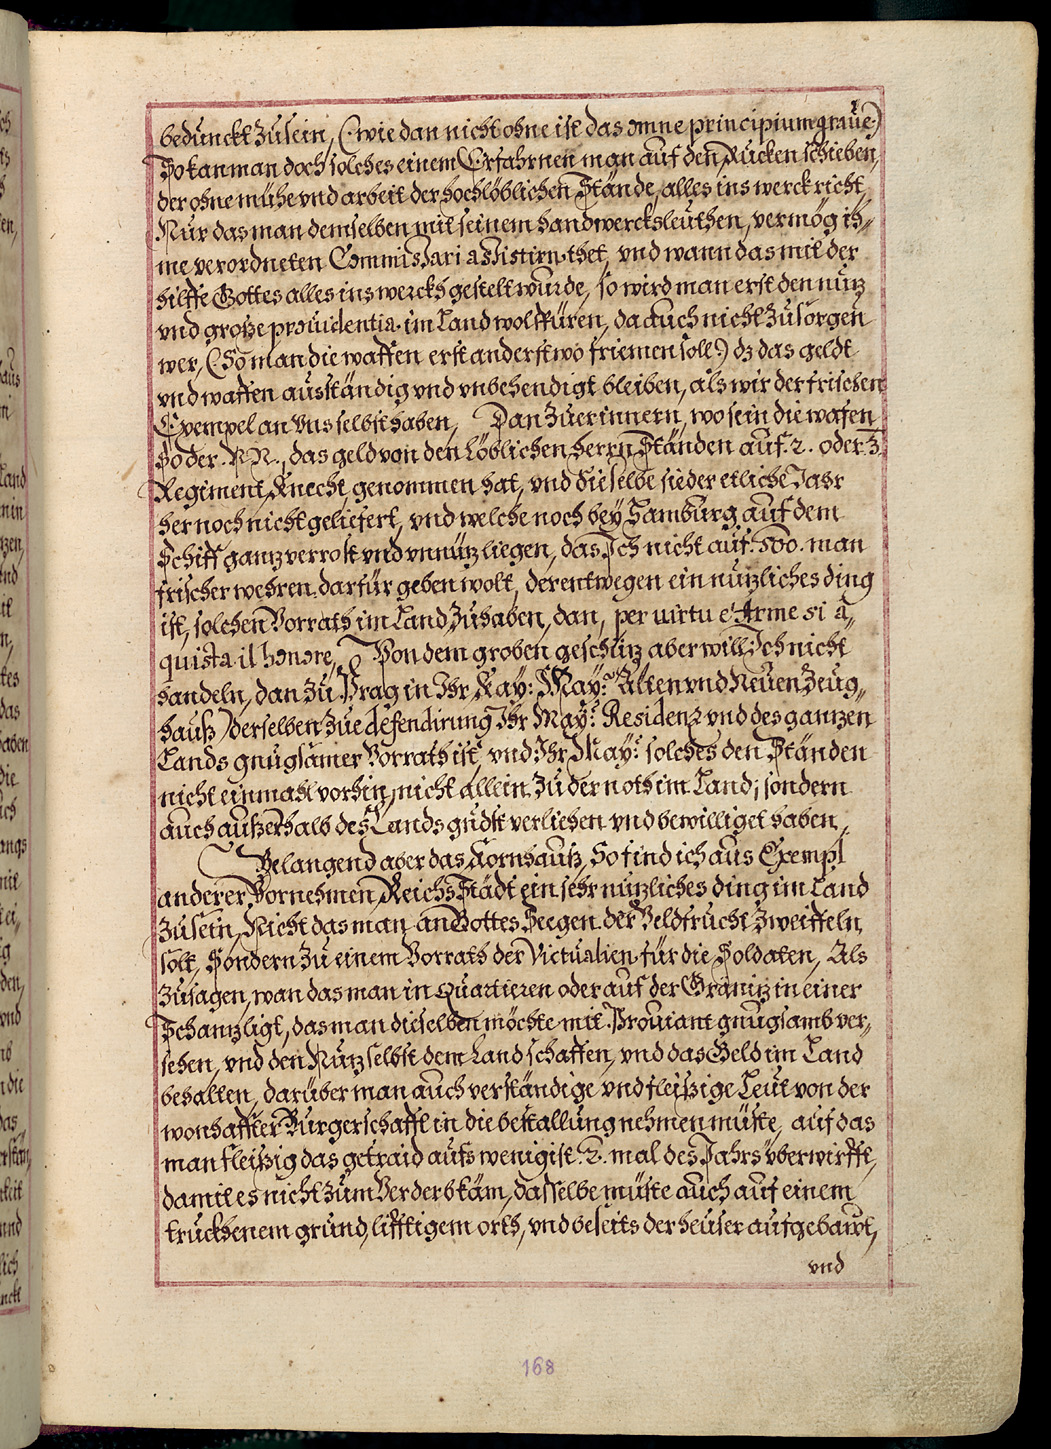 bedunckt zu sein, (wie dan nicht ohne ist das omne principium graue)
So kan man doch solches einem Erfahrnen man auf den Rucken schieben,
der ohne mühe vnd arbeit der hochlöblichen Stände, alles ins werck richt,
Nur das man demselben mit seinem handwercksleuthen, vermög ih„
me verordneten Commissari assistirn thet, vnd wann das mit der
hilffe Gottes alles ins werckh gestelt wurde, so wird man erst den nutz
vnd große prouidentia im Land wol spüren, da auch nicht zu sorgen
wer, (So man die waffen erst anderstwo friemen soll) dz das geldt
vnd waffen ausständig vnd vnbehendigt bleiben, als wir der frischen
Exempel an vns selbst haben, Dan zu erinnern, wo sein die wafen
So der N N., das geld von den Löblichen herrn Ständen auf 2. oder 3
Regiment Knecht, genommen hat, vnd dieselbe sieder etliche Jahr
her noch nicht geliefert, vnd welche noch bey Hamburg auf dem
Schiff gantz verrost vnd vnnutz liegen, das Ich nicht auf 500. man
frischer wehren darfür geben wolt, derentwegen ein nützliches ding
ist, solchen Vorrath im Land zu haben, dan, per uirtu e Arme si a„
quista il honore, Von dem groben geschütz aber will Ich nicht
handeln, dan zu Prag in Ihr Kay: May: Alten vnd Neuen Zeug„
hauß) derselben zue defendirung Ihr May: Residenz vnd des gantzen
Lands gnugsamer Vorrath ist, vnd Ihr May: solches den Ständen
nicht einmahl vorhin, nicht allein zu der noth im Land, sondern
auch außerhalb des Lands gndst verliehen vnd bewilliget haben,
Belangend aber das Kornhauß, So find ich aus Exempl
anderer Vornehmen Reichs Städt ein sehr nutzliches ding im Land
zu sein, Nicht das man an Gottes Seegen der Veldfrucht zweiffeln
solt, Sondern zu einem Vorrath der Victualien für die Soldaten, Als
zu sagen, wan das man in Quartieren oder auf der Gränitz in einer
Schantz ligt, das man dieselben möchte mit Prouiant gnugsamb ver„
sehen, vnd den Nutz selbst dem Land schaffen, vnd das Geld im Land
behalten, darüber man auch verständige vnd fleißige Leut von der
wonhaffter Burgerschafft in die bestallung nehmen müste, auf das
man fleißig das getraid aufs wenigist 2. mal des Jahrs vberwirfft,
damit es nicht zum Verderb käm, dasselbe müste auch auf einem
truckhenem grund, lifftigem orth, vnd beseits der heuser aufgebawt,
vnd
168